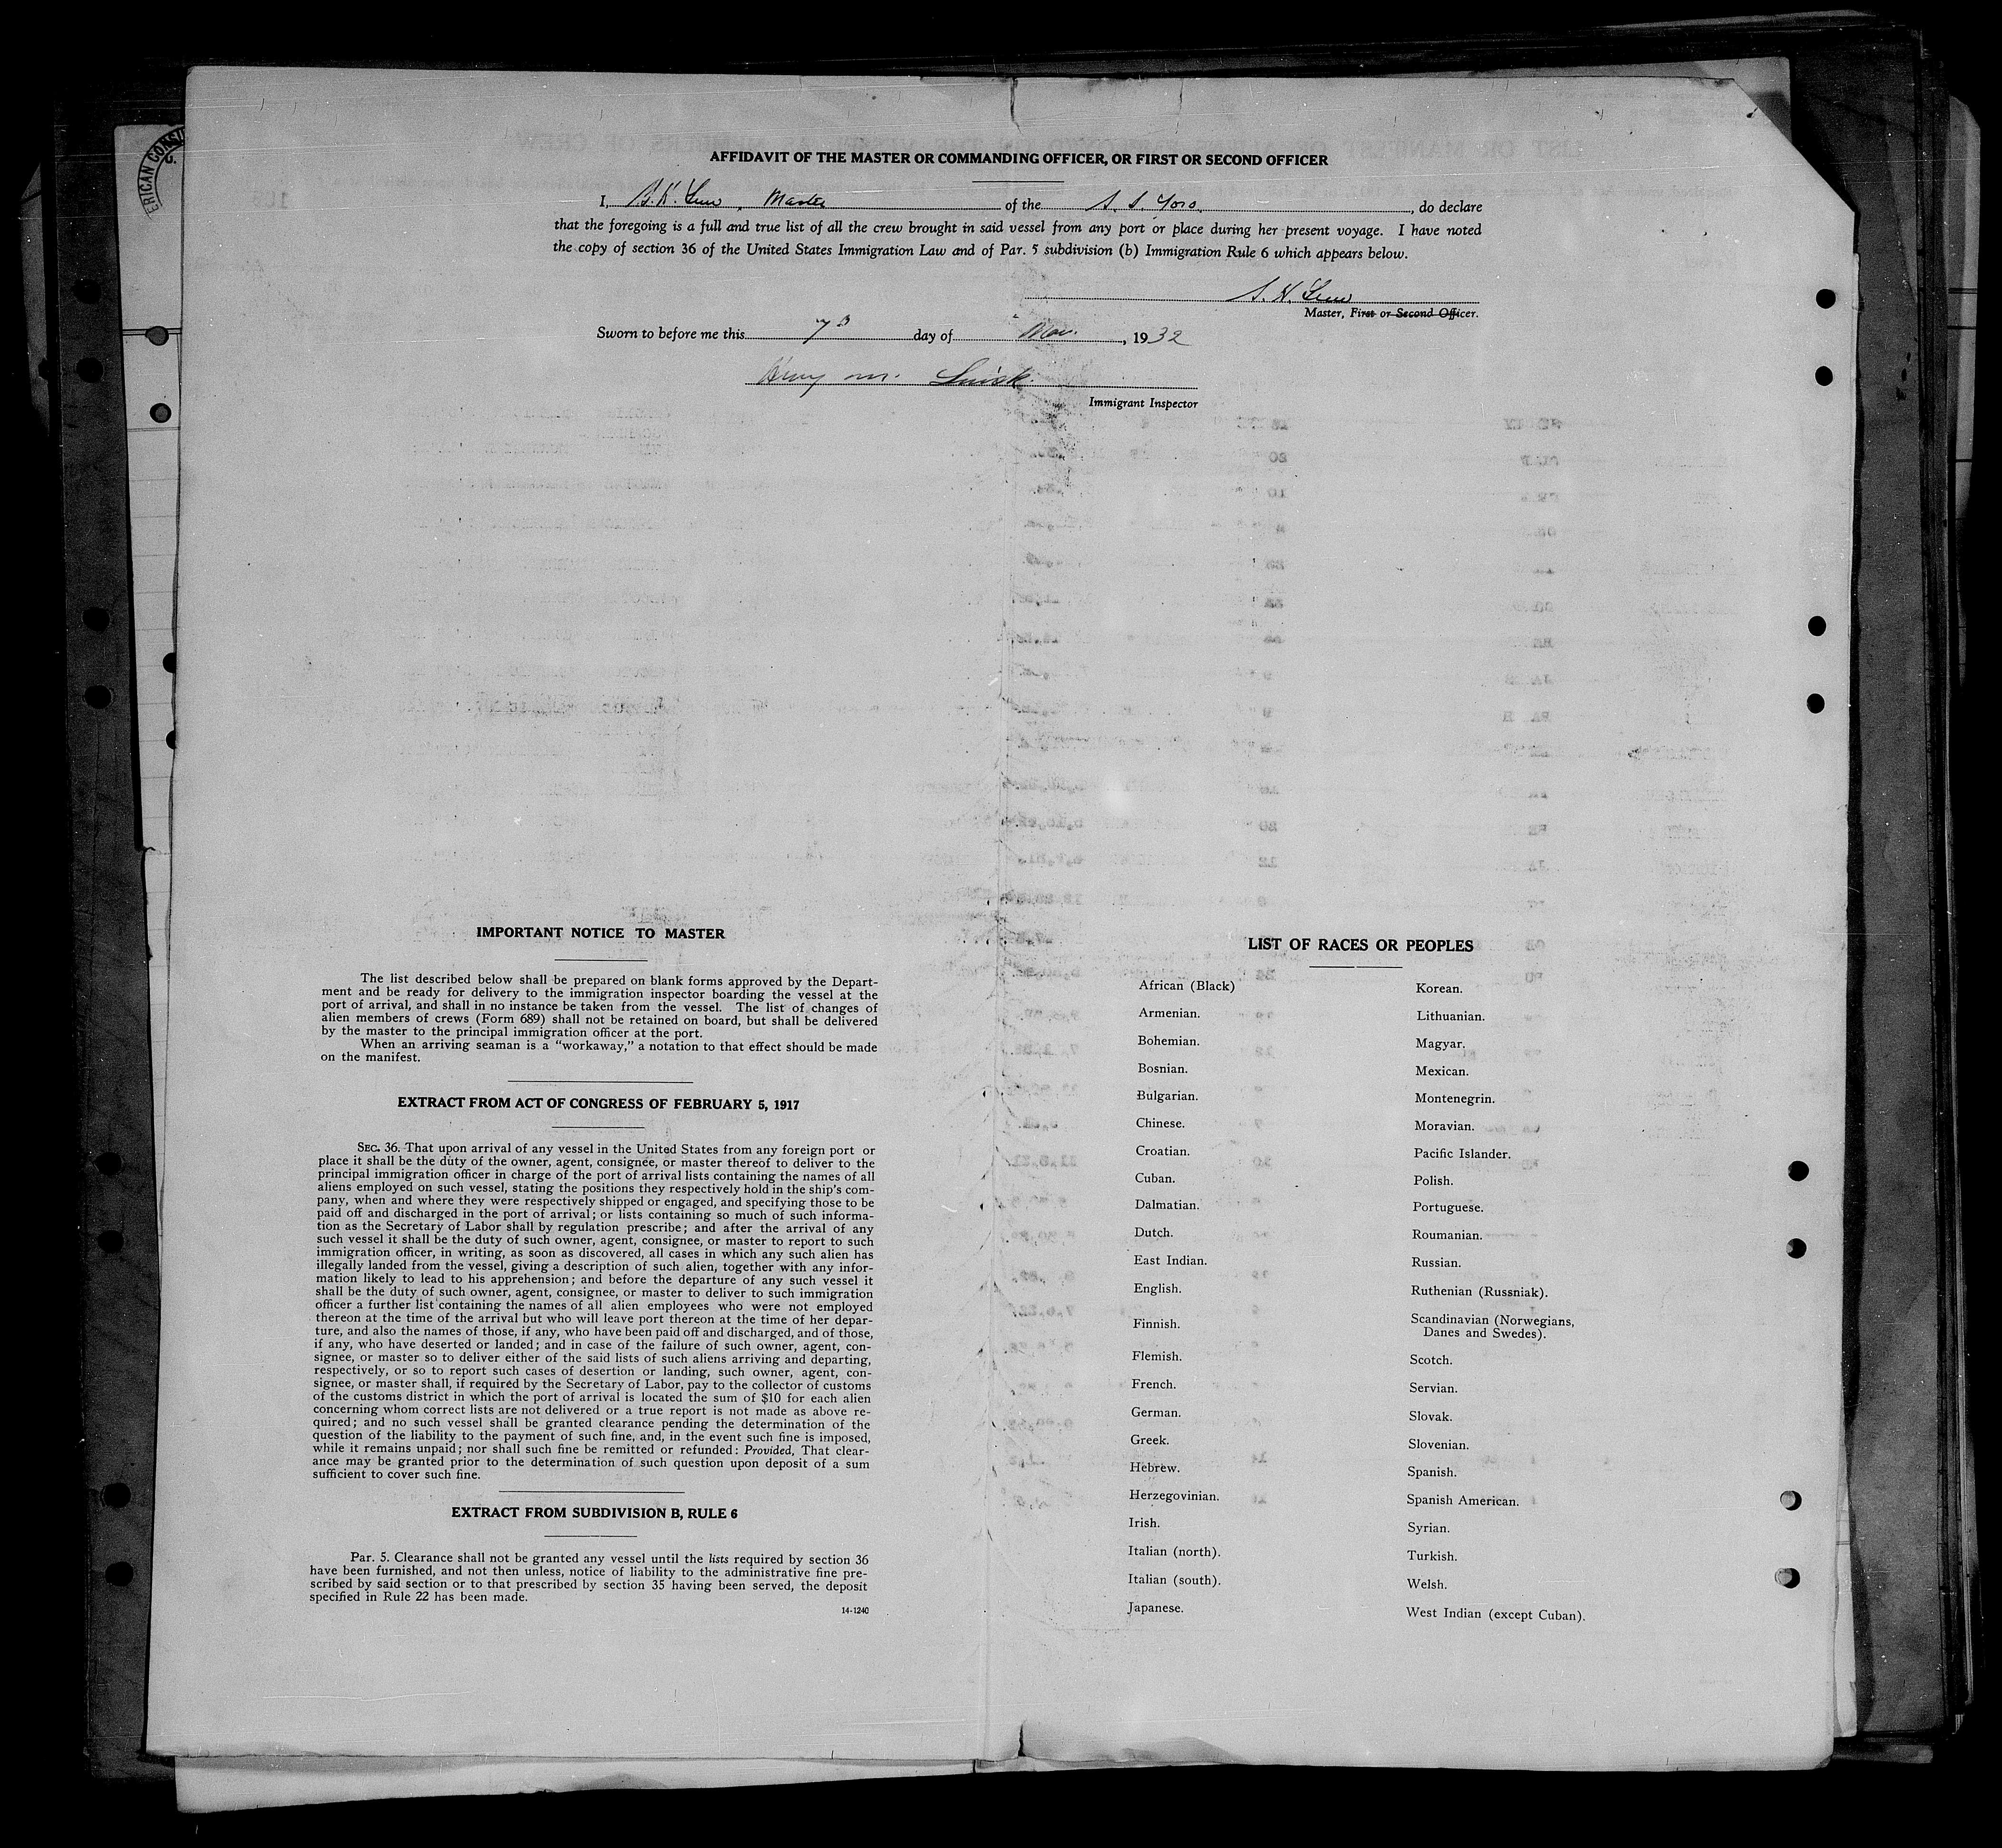 AFFIDAVIT OF THE MASTER OR COMMANDING OFFICER, OR FIRST OR SECOND OFFICER
I, Master of the S. S. Toro, do declare
that the foregoing is a full and true list of all the crew brought in said vessel from any port or place during her present voyage. I have noted
the copy of section 36 of the United States Immigration Law and of Par. 5 subdivision (b) Immigration Rule 6 which appears below.
Master, First or Second Officer.
Sworn to before me this 7th day of , 1932
Immigrant Inspector
IMPORTANT NOTICE TO MASTER
The list described below shall be prepared on blank forms approved by the Depart-
ment and be ready for delivery to the immigration inspector boarding the vessel at the
port of arrival, and shall in no instance be taken from the vessel. The list of changes of
alien members of crews (Form 689) shall not be retained on board, but shall be delivered
by the master to the principal immigration officer at the port.
When an arriving seaman is a "workaway," a notation to that effect should be made
on the manifest.
EXTRACT FROM ACT OF CONGRESS OF FEBRUARY 5, 1917
SEC. 36. That upon arrival of any vessel in the United States from any foreign port or
place it shall be the duty of the owner, agent, consignee, or master thereof to deliver to the
principal immigration officer in charge of the port of arrival lists containing the names of all
aliens employed on such vessel, stating the positions they respectively hold in the ship's com-
pany, when and where they were respectively shipped or engaged, and specifying those to be
paid off and discharged in the port of arrival; or lists containing so much of such informa-
tion as the Secretary of Labor shall by regulation prescribe; and after the arrival of any
such vessel it shall be the duty of such owner, agent, consignee, or master to report to such
immigration officer, in writing, as soon as discovered, all cases in which any such alien has
illegally landed from the vessel, giving a description of such alien, together with any infor-
mation likely to lead to his apprehension; and before the departure of any such vessel it
shall be the duty of such owner, agent, consignee, or master to deliver to such immigration
officer a further list containing the names of all alien employees who were not employed
thereon at the time of the arrival but who will leave port thereon at the time of her depar-
ture, and also the names of those, if any, who have been paid off and discharged, and of those,
if any, who have deserted or landed; and in case of the failure of such owner, agent, con-
signee, or master so to deliver either of the said lists of such aliens arriving and departing,
respectively, or so to report such cases of desertion or landing, such owner, agent, con-
signee, or master shall, if required by the Secretary of Labor, pay to the collector of customs
of the customs district in which the port of arrival is located the sum of $10 for each alien
concerning whom correct lists are not delivered or a true report is not made as above re-
quired; and no such vessel shall be granted clearance pending the determination of the
question of the liability to the payment of such fine, and, in the event such fine is imposed,
while it remains unpaid; nor shall such fine be remitted or refunded: Provided, That clear-
ance may be granted prior to the determination of such question upon deposit of a sum
sufficient to cover such fine.
EXTRACT FROM SUBDIVISION B, RULE 6
Par. 5. Clearance shall not be granted any vessel until the lists required by section 36
have been furnished, and not then unless, notice of liability to the administrative fine pre-
scribed by said section or to that prescribed by section 35 having been served, the deposit
specified in Rule 22 has been made.
14-1240
LIST OF RACES OR PEOPLES
African (Black)
Armenian.
Bohemian.
Bosnian.
Bulgarian.
Chinese.
Croatian.
Cuban.
Dalmatian.
Dutch.
East Indian.
English.
Finnish.
Flemish.
French.
German.
Greek.
Hebrew.
Herzegovinian.
Irish.
Italian (north).
Italian (south).
Japanese.
Korean.
Lithuanian.
Magyar.
Mexican.
Montenegrin.
Moravian.
Pacific Islander.
Polish.
Portuguese.
Roumanian.
Russian.
Ruthenian (Russniak).
Scandinavian (Norwegians,
Danes and Swedes).
Scotch.
Servian.
Slovak.
Slovenian.
Spanish.
Spanish American.
Syrian.
Turkish.
Welsh.
West Indian (except Cuban).